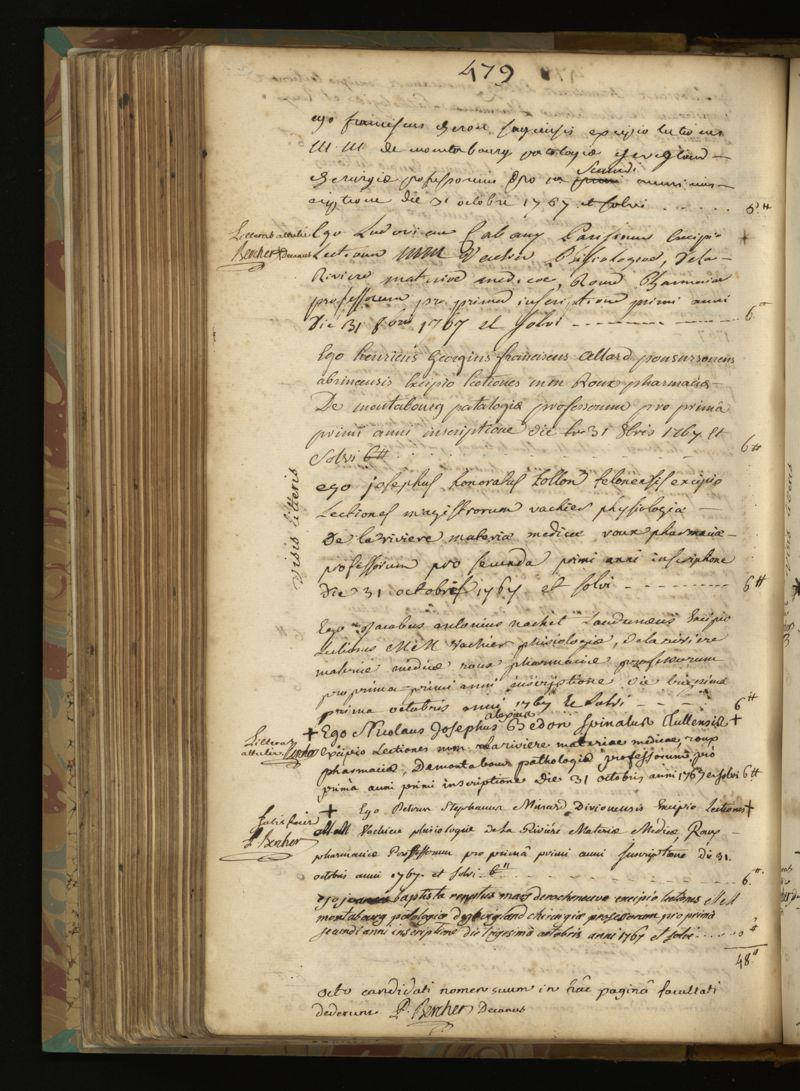 479
ego franciscus excipio lectiones
M.M de montabourg patologiæ
secundi
chirurgiæ professorum pro 1a primi anni ins-
criptione die 31 octobre 1767 et solvi ..... 6 ₶
Litteras attulit
Bercher Decanus
Ego Ludovicus Parisinus Excipio +
Lectiones MM Vachier Phisiologiæ, Dela-
Riviere materiæ medicæ, Roux Pharmaciæ
professorum pro prima inscriptione primi anni
Die 31 8bris 1767 et solvi ---------- 6 ₶
Ego henricus Georgius franciscus allard
abrincensis Excipio lectiones mm Roux pharmaciæ-
De montabourg patalogiæ professorum pro primâ
primi anni inscriptione die 31 8bris 1767 Et
solvi 6₶ ........ 6₶
visis litteris
ego josephus honoratus tollon telonensis excipio
Lectiones magistrorum vachier physiologiæ -
De lariviere materiæ medicæ roux pharmaciæ -
professorum pro secunda primi anni inscriptione
die 31 octobris 1767 et solvi --------- 6₶
Ego Jacobus antonius vachet Laudunæus Excipio
Lectiones MM Vachier phisiologiæ, delariviere
materiæ medicæ roux pharmaciæ professorum
pro prima primi anni inscriptione die trigesima
prima octobris anni 1767 Et Solvi - - - - 6₶
Litteras
attulit Bercher
alexius
+ Ego Nicolaus Josephus Bedon Spinalus Tullensis +
excipio Lectiones mm. Lariviere materiæ medicæ, roux
pharmaciæ, Demontabour pathologiæ professorum pro
prima anni primi inscriptione die 31 octobris anni 1767 et solvi 6₶
P. Bercher
+ Ego Petrus Stephanus Divionensis Excipio Lectiones +
MM Vachier phisiologiæ de La Riviére Materiæ Medicæ, Roux -
pharmaciæ Professorum pro primâ primi anni Inscriptione die 31.
octobris anni 1767. et solvi 6₶ ........ 6.₶
ego joannes baptista excipio lectiones MM
montabourg patologiæ chirurgiæ professorum pro primâ
secundi anni inscriptione die trigesimâ octobris anni 1767 et solvi ...... 6₶
48₶
octo candidati nomen suum in hâc paginâ facultati
dederunt P. Bercher Decanus